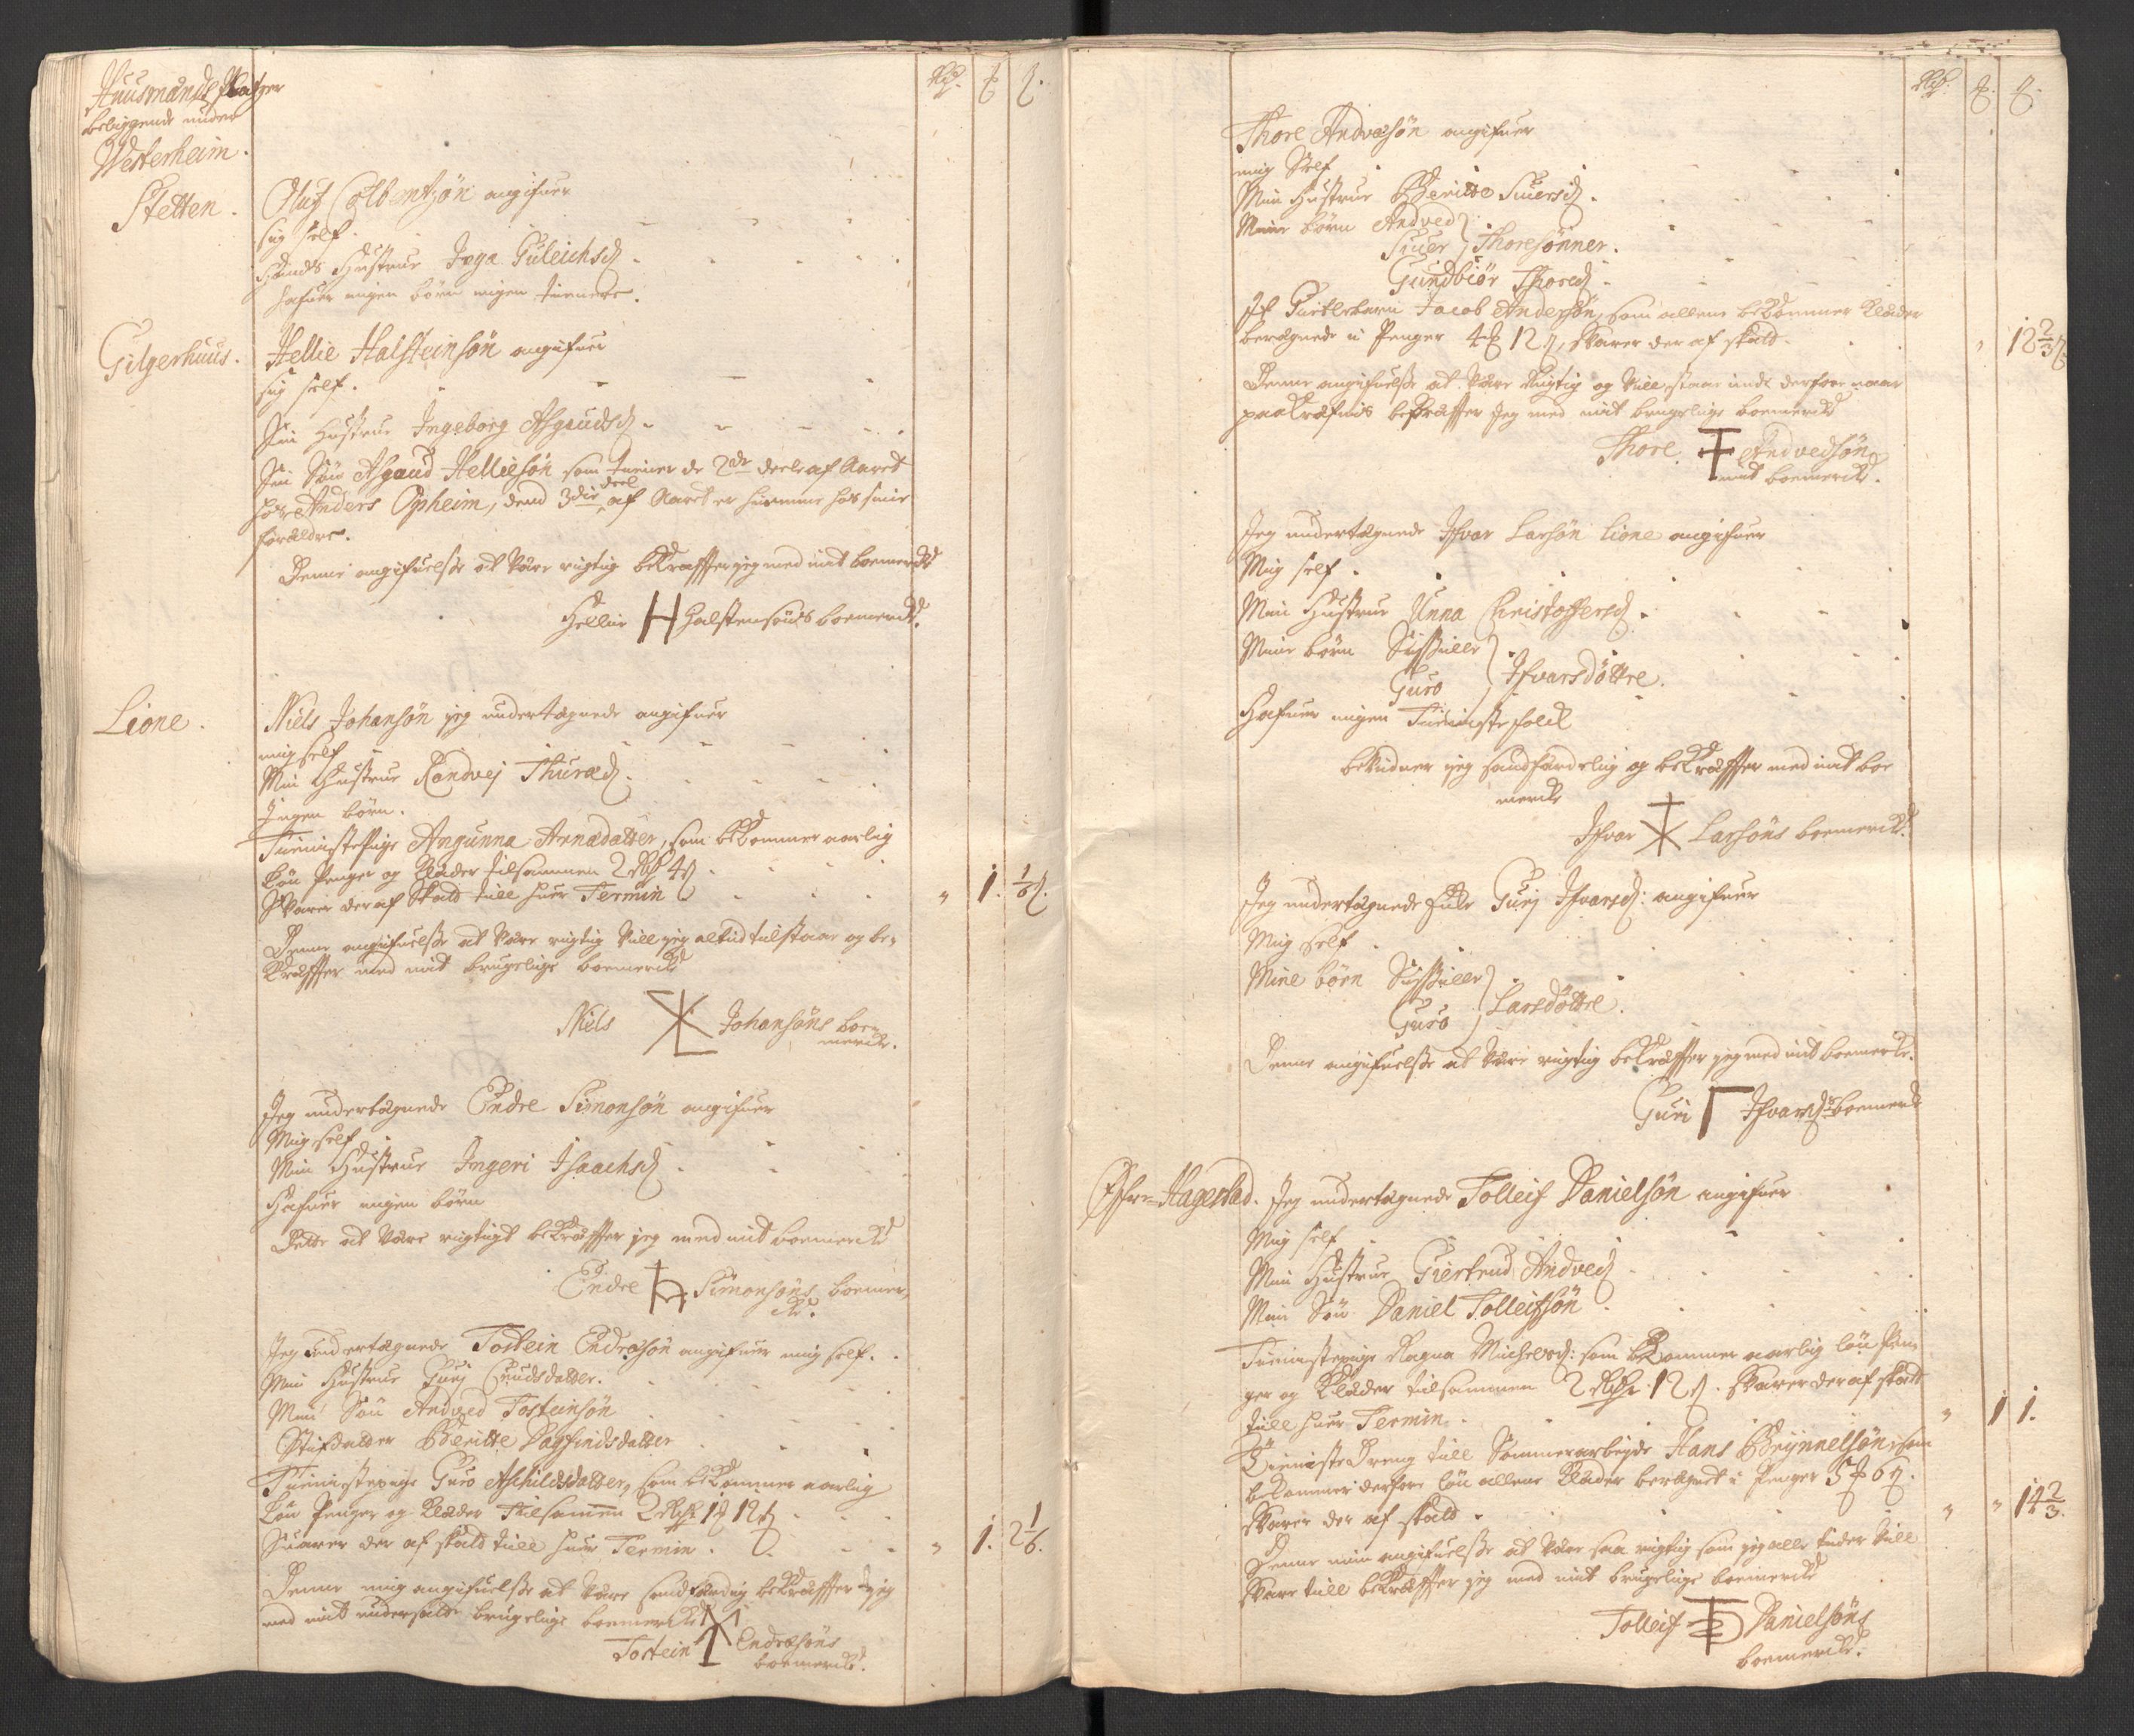 Huusmands Pladtzer
beliggende under
Westerheim.
Rdr. ₰ ß.
Stetten. Oluf Colbentzøn angifuer
sig self.
Hands Hustrue Inga Guleichsd.
hafuer ingen børn ingen tienere.
Gilgerhuus. Hellie Halsteinsøn angifuer
sig self.
Sin Hustrue Ingeborg Asgaudsd.
Sin Søn Asgaud Helliesøn som tiener de 2de deele af Aaret
hos Anders Opheim, dend 3die deel af Aaret er hiemme hos sine
forældre.
Denne angifuelsse at være rigtig bekræffter jeg med mit boemercke
Hellie H Halstensøns boemercke.
Lione. Niels Johansøn jeg undertegnede angifuer
mig self
Min Hustrue Randvej Thuræd.
Ingen børn.
Tienistepige Angunna Arnædatter, som bekommer aarlig
Løn Penger og Klæder tilsammen 2 Rdr 4 ß
Svarer der af Skatt till huer Termin " 1. 1/6 ß.
Denne angifuelsse at være rigtig vill jeg altid tilstaae og be-
kræffter med mit brugelige boemercke
Niels Johansøns boe-
mercke.
Jeg undertegnede Endre Simonsøn angifuer
Mig self
Min Hustrue Ingeri Isaachsd.
Hafuer ingen børn
Dette at være rigtigt bekræffter jeg med mit boemercke
Endre Simonsøns boemer-
cke.
Jeg undertegnede Tostein Endresøn angifuer mig self.
Min Hustrue Gurj Cnudsdatter.
Min Søn Andved Tosteinsøn
Stifdatter Beritte Dagfindsdatter
Tienistepige Guro Aschildsdatter, som bekommer aarlig
Løn Penger og Klæder Tilsamen 2 Rdr 1 ₰ 12 ß
Suarer der af skatt till huer Termin. " 1. 2 1/6.
Denne mig angifuelsse at være sandfærdig bekræffter jeg
med mit undersatte brugelige boemercke
Tostein Endresøns
boemercke.
Rdr. ₰. ß.
Thore Andvedsøn angifuer
mig Self
Min Hustrue Beritte Siuersd.
Mine børn Andved
Siuer } Thoresønner.
Gundbiør Thored.
It Giettlebarn Jacob Andersøn, som allene bekommer Klæder
beregnede i Penger 4 ₰ 12 ß, Svarer der af skatt. " 12 2/3 ß.
Denne angifuelsse at være Rigtig og vill staae inde derfore naar
paakræfves bekræffter Jeg med mit brugelige boemercke
Thore Andvedsøn
mit boemercke.
Jeg undertegnede Ifvar Larsøn Lione angifuer
Mig self.
Min Hustrue Unna Christoffersd.
Mine børn Sissille
Guro } Ifvarsdøttre.
Hafuer ingen Tienistefolck
bevidner jeg sandfærdelig og bekræffter med mit boe
mercke
Ifvar Larsøns boemercke.
Jeg undertegnede Encke Gurj Ifvarsd: angifuer
Mig self
Mine børn Sissille
Guro } Larsdøttre.
Denne angifuelsse at være rigtig bekræffter jeg med mit boemercke.
Guri Γ Ifvarsd: boemercke
Øfre-Hagestad. Jeg undertegnede Tolleif Danielsøn angifuer
Mig self
Min Hustrue Giertrud Andved.
Min Søn Daniel Tolleifsøn
Tienistepige Ragna Michelsd: som bekommer aarlig løn Pen-
ger og Klæder tilsammen 2 Rdr 12 ß. Svarer der af skatt
till huer Termin. " 1 1.
TienisteDreng till Sommerarbeyde Hans Brynnelsøn, som
bekommer derfore løn allene Klæder beregnet i Penger 5 ₰ 6 ß.
Svarer der af skatt. " " 14 2/3.
Denne min angifuelsse at være saa rigtig som jeg alle tider vill
Svare till bekræffter jeg med mit brugelige boemercke
Tolleif Danielsøns
boemercke.